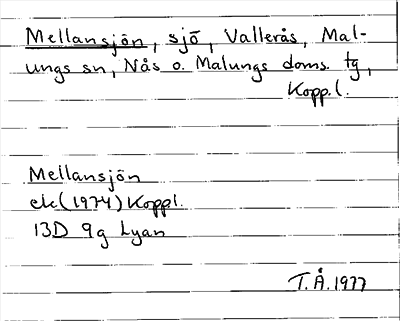 Mellansjön, sjö, Vallerås, Mal-
ungs sn, Nås o. Malungs doms. tg,
Kopp.l.
Mellansjön
ek (1974) Koppl.
13D 9g Lyan
T.Å.1977